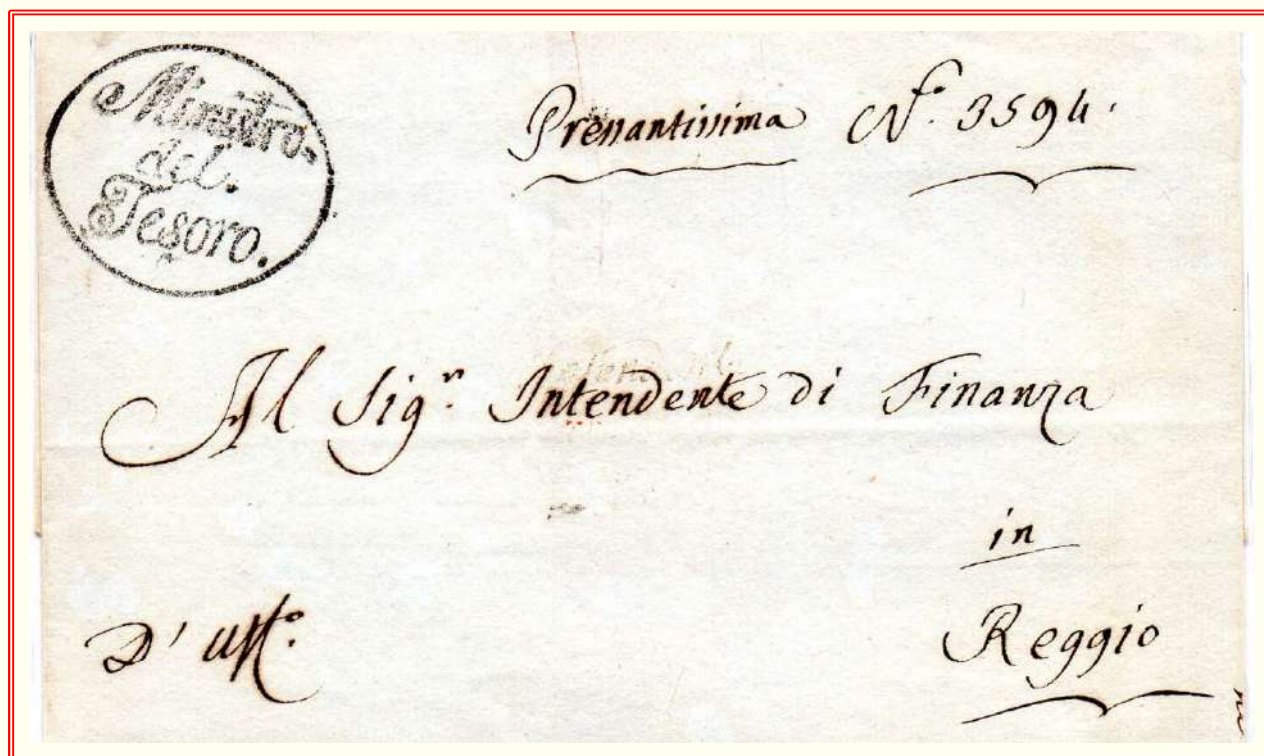 Ministro
del.
Tesoro.
Pressantissima N.º 3594.
Al Sig.r Intendente di Finanza
in
Reggio
D' Uff.º